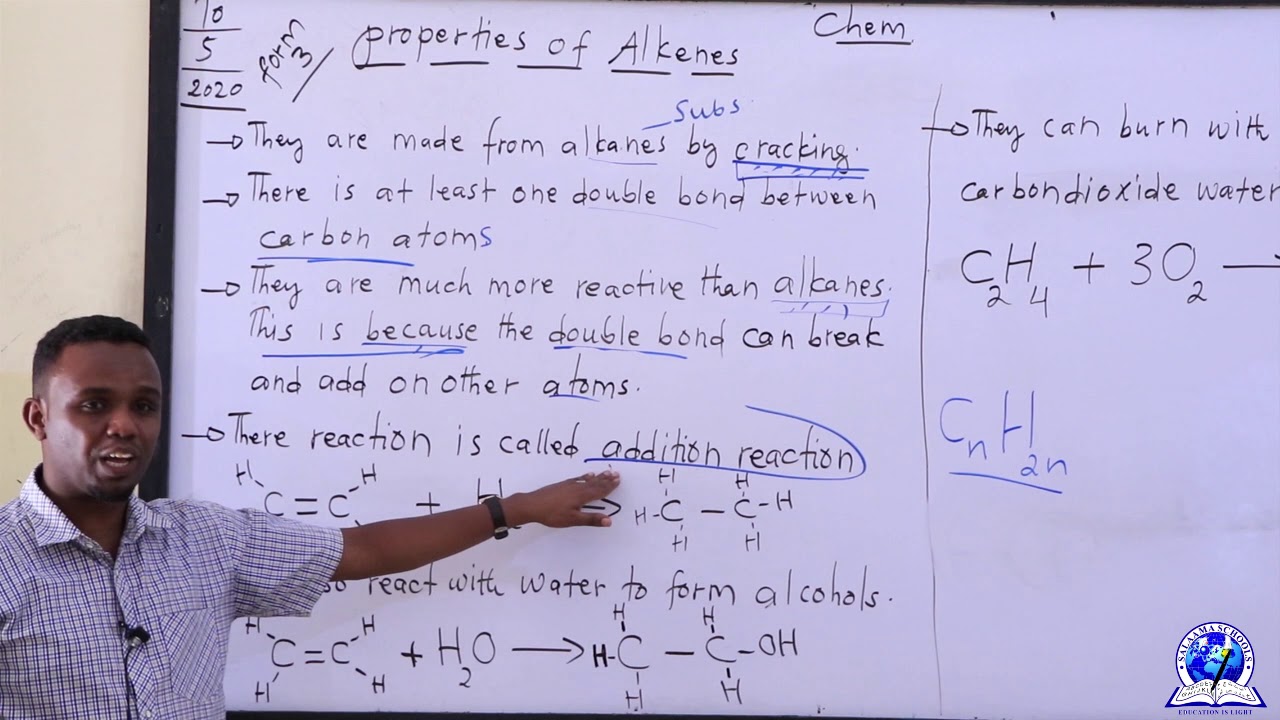 10
5
2020
form 3/
properties of Alkenes
Chem
subs
→ They are made from alkanes by cracking.
→ There is at least one double bond between
carbon atoms
→ They are much more reactive than alkanes.
This is because the double bond can break
and add on other atoms.
→ There reaction is called addition reaction
H H H H
C = C + H → H - C — C - H
H H
react with water to form alcohols.
H H H H
C = C + H2O → H - C — C - OH
H H H H
→ They can burn with
carbondioxide water
C2H4 + 3O2 —
CnH2n
SALAAMA SCHOOLS
EDUCATION IS LIGHT